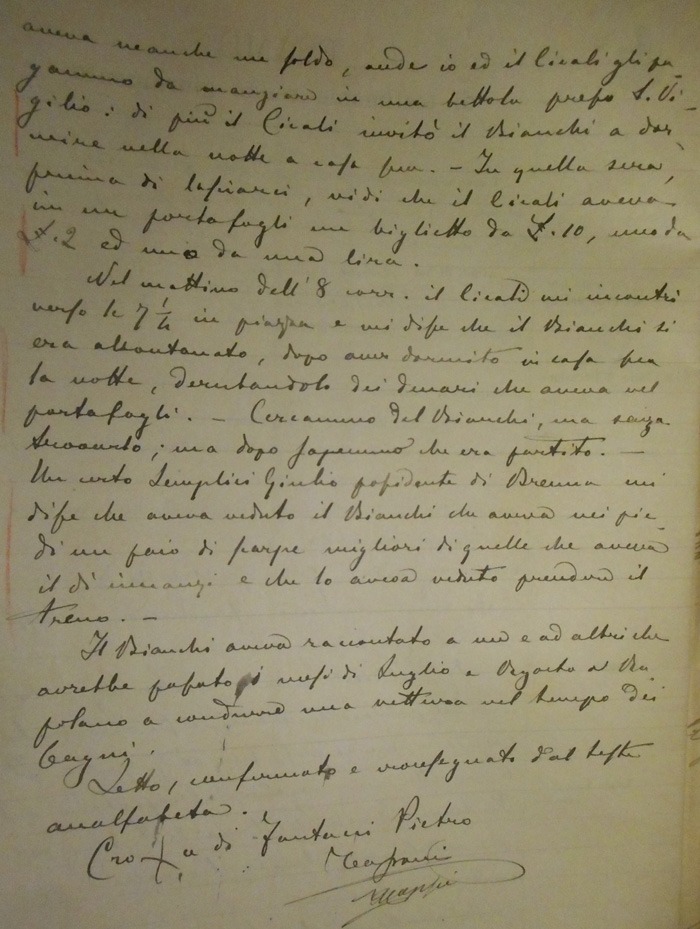 aveva neanche un soldo, onde io ed il Cicali gli pa-
gammo da mangiare in una bettola presso S. Vi-
gilio: di più il Cicali invitò il Bianchi a dor-
mire nella notte a casa sua. – In quella sera,
prima di lasciarci, vidi che il Cicali aveva
in un portafogli un biglietto da L. 10, uno da
L. 2 ed uno da una lira.
Nel mattino dell' 8 corr. il Cicali mi incontrò
verso le 7 ½ in piazza e mi disse che il Bianchi si
era allontanato, dopo aver dormito in casa sua
la notte, derubandolo dei denari che aveva nel
portafogli. – Cercammo del Bianchi, ma senza
trovarlo; ma dopo sapemmo che era partito. –
Un certo Semplici Giulio possidente di Brenna mi
disse che aveva veduto il Bianchi che aveva nei pie-
di un paio di scarpe migliori di quelle che aveva
il dì innanzi e che lo aveva veduto prendere il
treno. –
Il Bianchi aveva raccontato a me e ad altri che
avrebbe passato i mesi di Luglio e Agosto a Ra
polano a condurre una vettura nel tempo dei
bagni.
Letto, confermato e crocesegnato dal teste
analfabeta.
Cro + ce di Fantacci Pietro